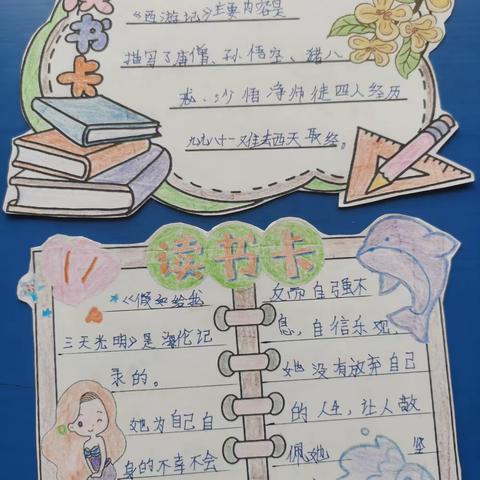 读书卡
《西游记》主要内容是
描写了唐僧、孙悟空、猪八
戒、沙悟净师徒四人经历
九九八十一难去西天取经。
读书卡
《假如给我
三天光明》是海伦记
录的。
她为自己自
身的不幸不会
反而自强不
息,自信乐观,
她没有放弃自己
的人生,让人敬
佩她 坚